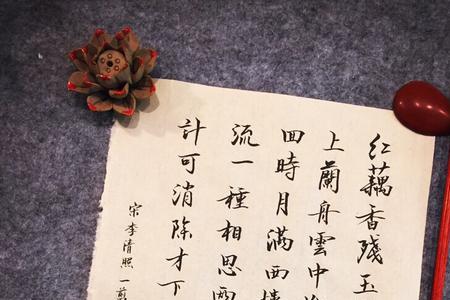 红藕香殘玉
上蘭舟雲中
回時月滿西樓
流一種相思兩
計可消除才下
宋李清照一剪